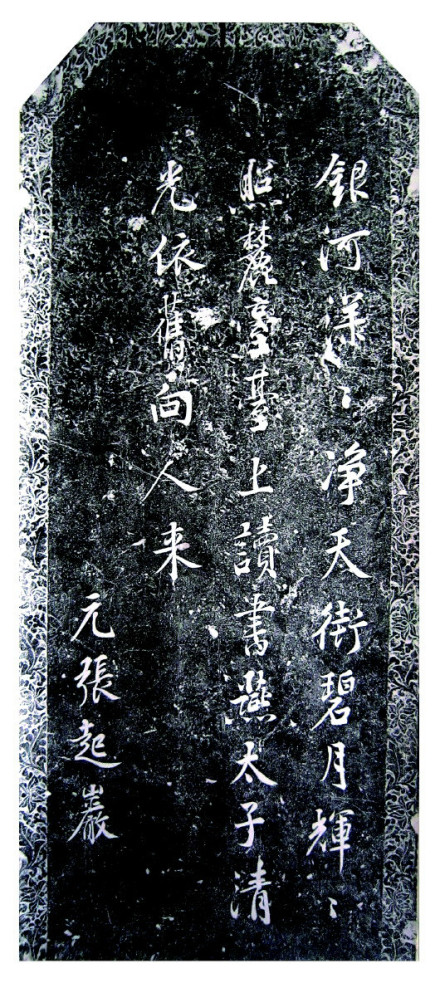 銀河洋〻淨天街碧月輝〻
照麓臺臺上讀書太子清
光依舊向人来
元張起巖